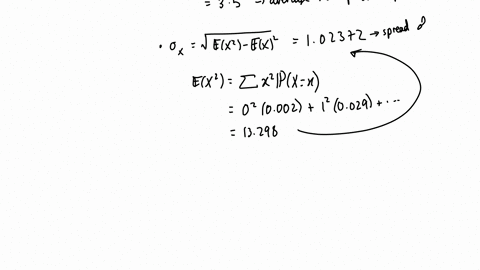 = 3.5 → average
• σₓ = √(𝔼(X²) - 𝔼(X)²) = 1.02372 → spread
𝔼(X²) = ∑ x² ℙ(X=x)
= 0²(0.002) + 1²(0.029) + ...
= 13.298